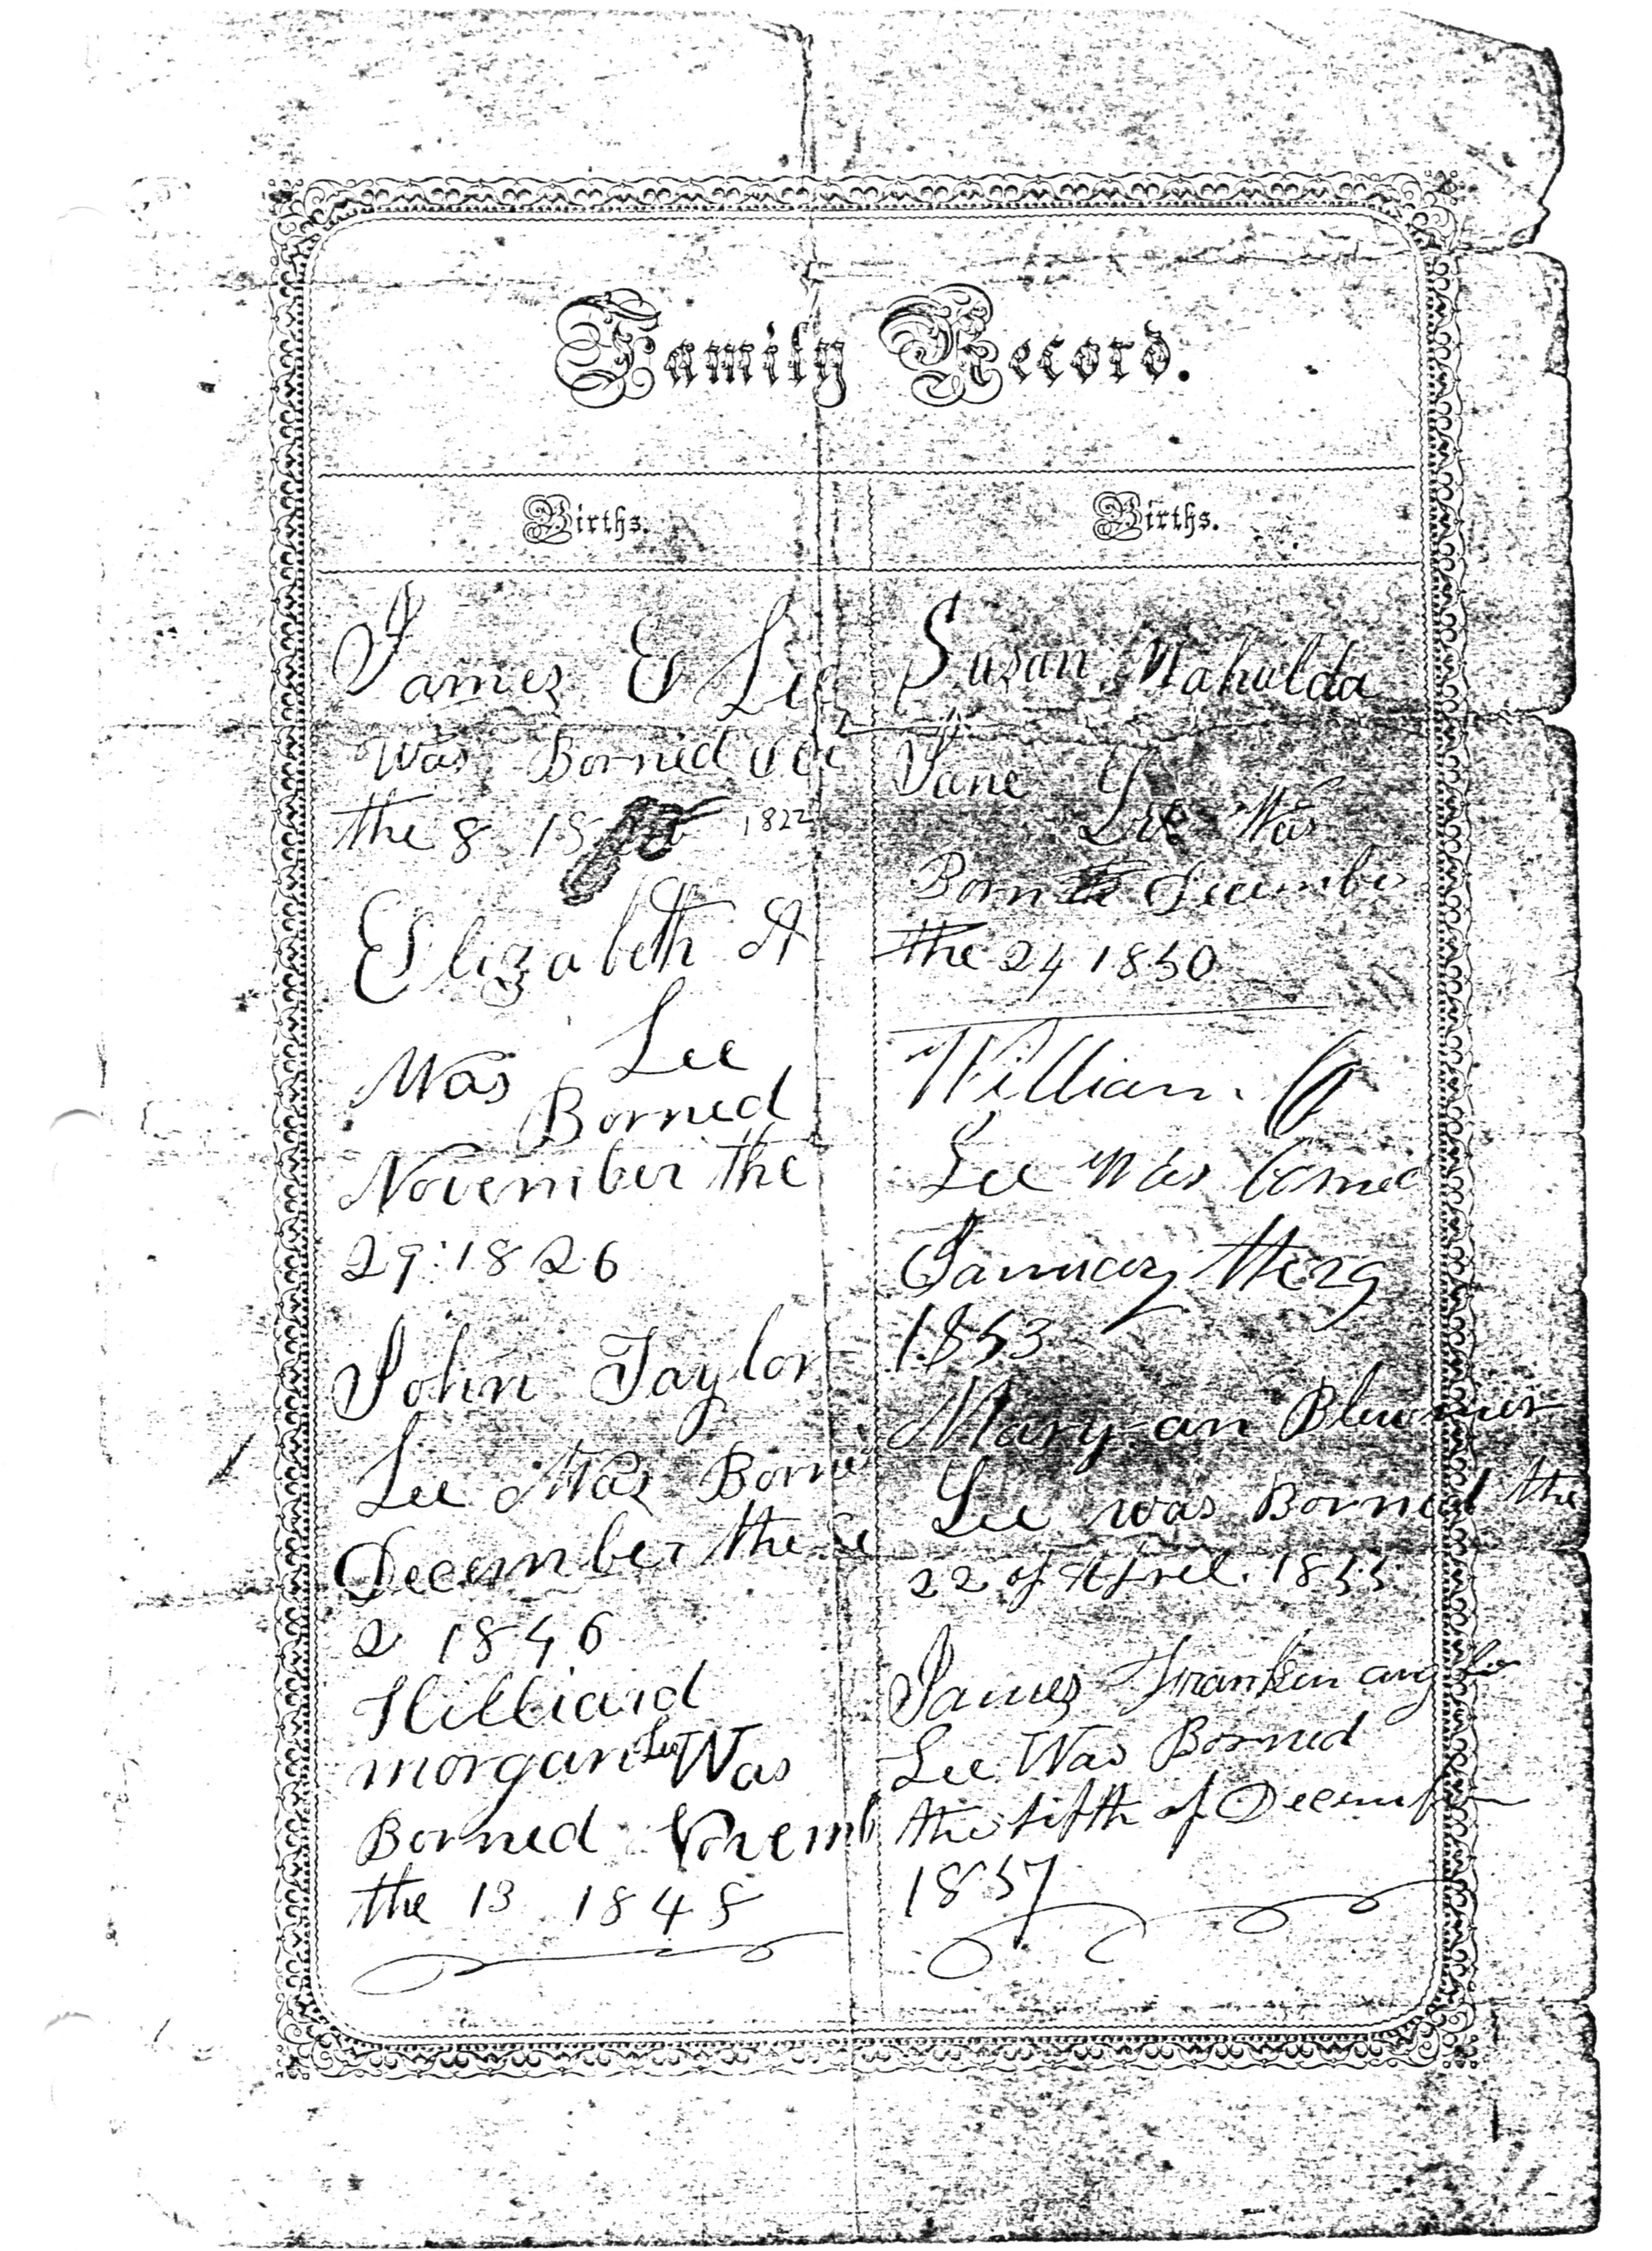 Family Record.
Births.
James E Lee
Was Borned Oct
the 8 18 1822
Elizabeth A
Lee
Was Borned
November the
29: 1826
John Taylor
Lee Was Borne
December the
2 1846
Hilliard
morgan Lee Was
Borned Novemb
the 13 1848
Births.
Susan Mahulda
Jane
Lee Was
Born December
the 24 1850
William
Lee Was borned
January the 29
1853
Mary an
Lee was Borned the
22 of Aprel. 1855
James Franklin
Lee Was Borned
the fifth of December
1857